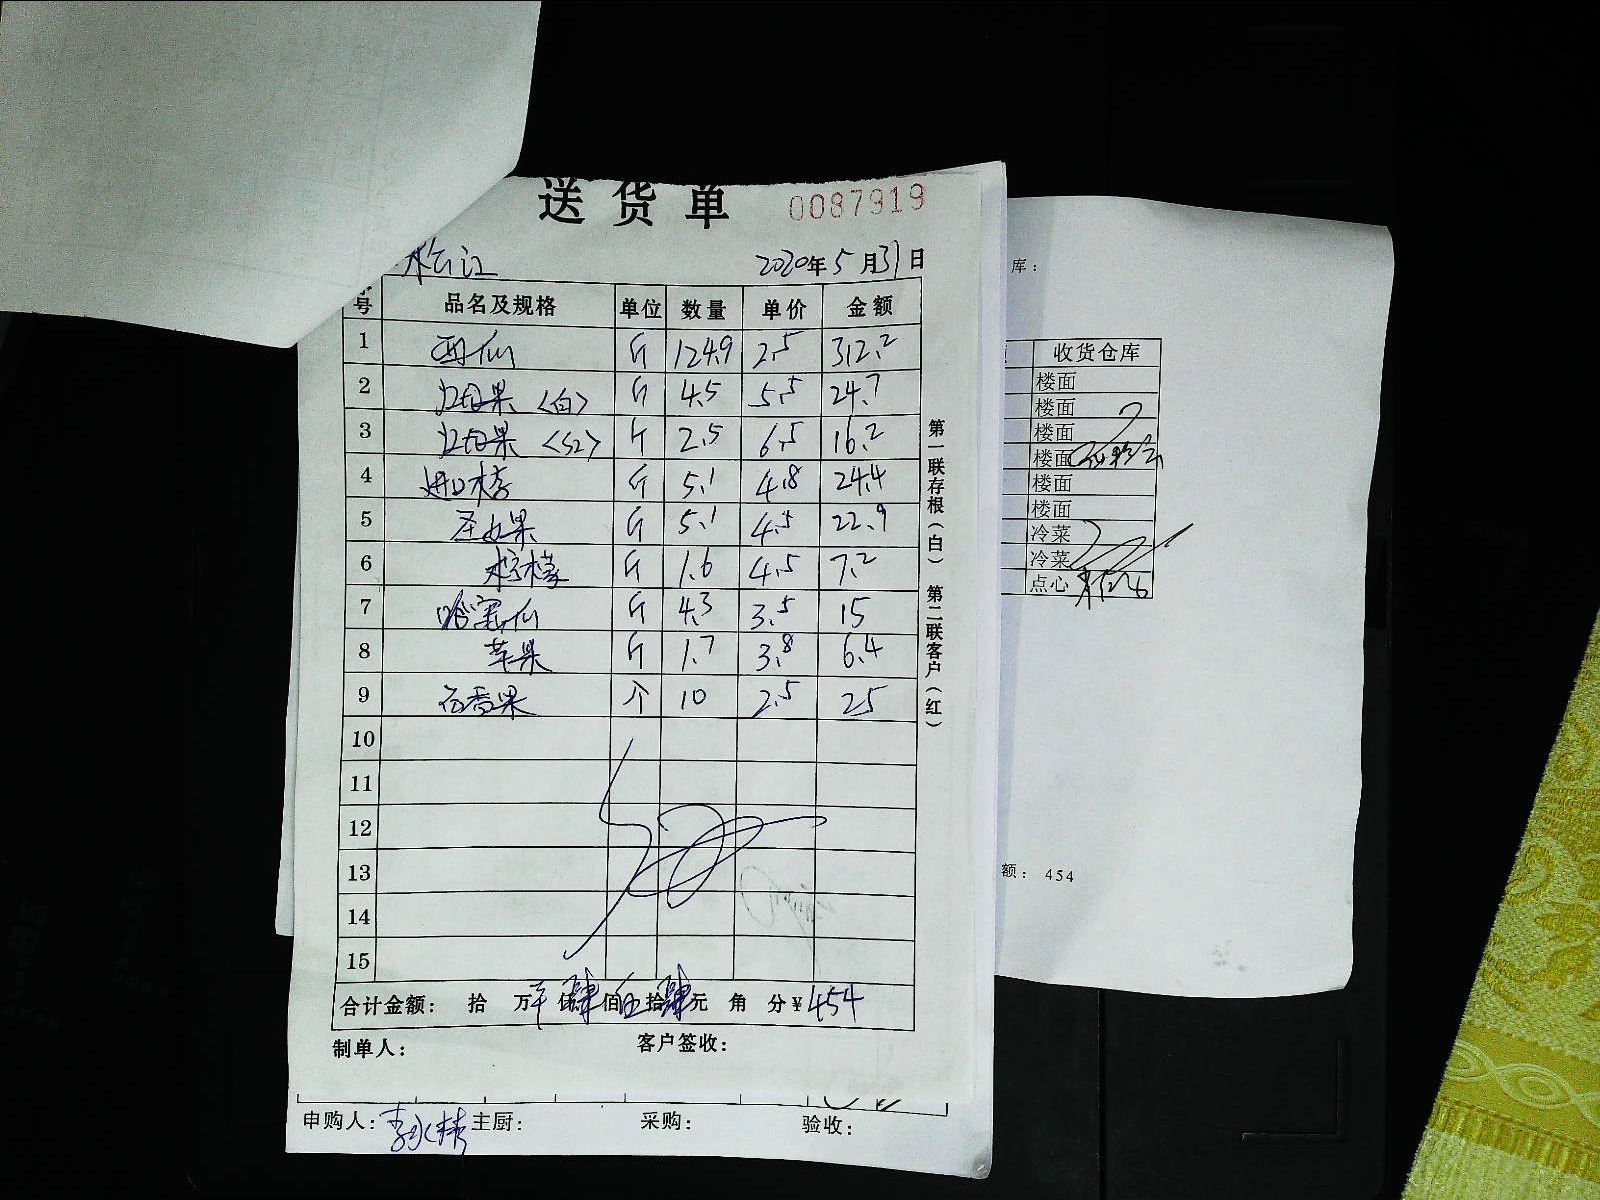 送货单 0087919
松江 2020年5月31日
号 品名及规格 单位 数量 单价 金额
1 西仙 斤 124.9 2.5 312.2
2 火龙果<白> 斤 4.5 5.5 24.7
3 火龙果<红> 斤 2.5 6.5 16.2
4 进口橙 斤 5.1 4.8 24.4
5 圣女果 斤 5.1 4.5 22.9
6 柠檬 斤 1.6 4.5 7.2
7 哈密仙 斤 4.3 3.5 15
8 苹果 斤 1.7 3.8 6.4
9 百香果 个 10 2.5 25
10
11
12
13
14
15
合计金额: 拾 万 仟肆佰伍拾肆元 角 分¥454
制单人: 客户签收:
第一联存根(白) 第二联客户(红)
申购人: 主厨: 采购: 验收:
库:
收货仓库
楼面
楼面
楼面
楼面
楼面
楼面
冷菜
冷菜
点心
额: 454